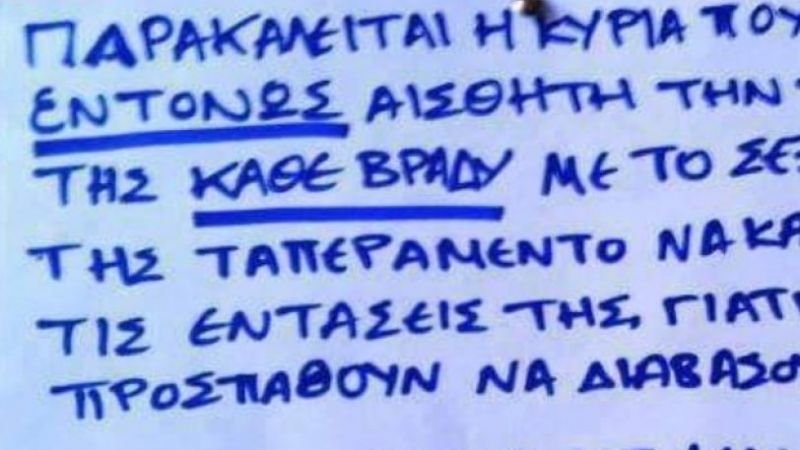 ΠΑΡΑΚΑΛΕΙΤΑΙ Η ΚΥΡΙΑ ΠΟΥ
ΕΝΤΟΝΩΣ ΑΙΣΘΗΤΗ ΤΗΝ
ΤΗΣ ΚΑΘΕ ΒΡΑΔΥ ΜΕ ΤΟ ΣΕΞ
ΤΗΣ ΤΑΠΕΡΑΜΕΝΤΟ ΝΑ ΚΑ
ΤΙΣ ΕΝΤΑΣΕΙΣ ΤΗΣ, ΓΙΑΤΙ
ΠΡΟΣΠΑΘΟΥΝ ΝΑ ΔΙΑΒΑΣΟ